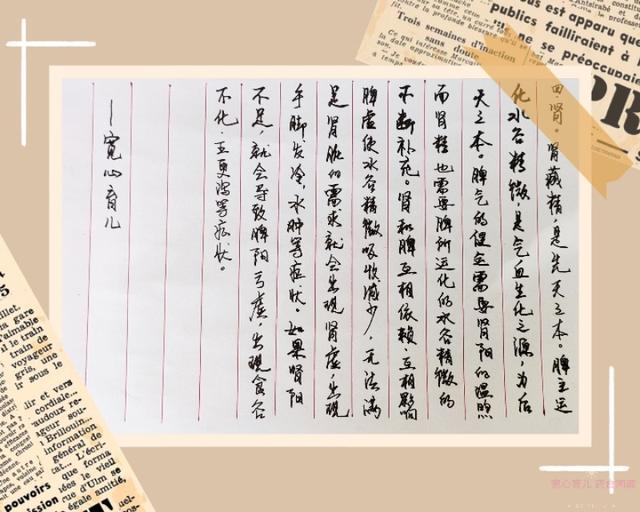 四肾。肾藏精,是先天之本。脾主运
化水谷精微,是气血生化之源,为后
天之本。脾气的健运需要肾阳的温煦
而肾精也需要脾所运化的水谷精微的
不断补充。肾和脾互相依赖,互相影响
脾虚使水谷精微吸收减少,无法满
足肾脏的需求就会出现肾虚,出现
手脚发冷,水肿等症状。如果肾阳
不足,就会导致脾阳亏虚,出现食谷
不化,五更泻等症状。
—宽心育儿
Trois semaines d'inaction
sans doute
est apparu que
publics failliraient à
ne se préoccupaient
l'aimable
train de
voyageur
gris, une
sous le
lir et vers
cordiale
information
Brillouin,
que forma
rue d'Ulm se
égale amitié,
pouvoirs
宽心育儿 药食同源